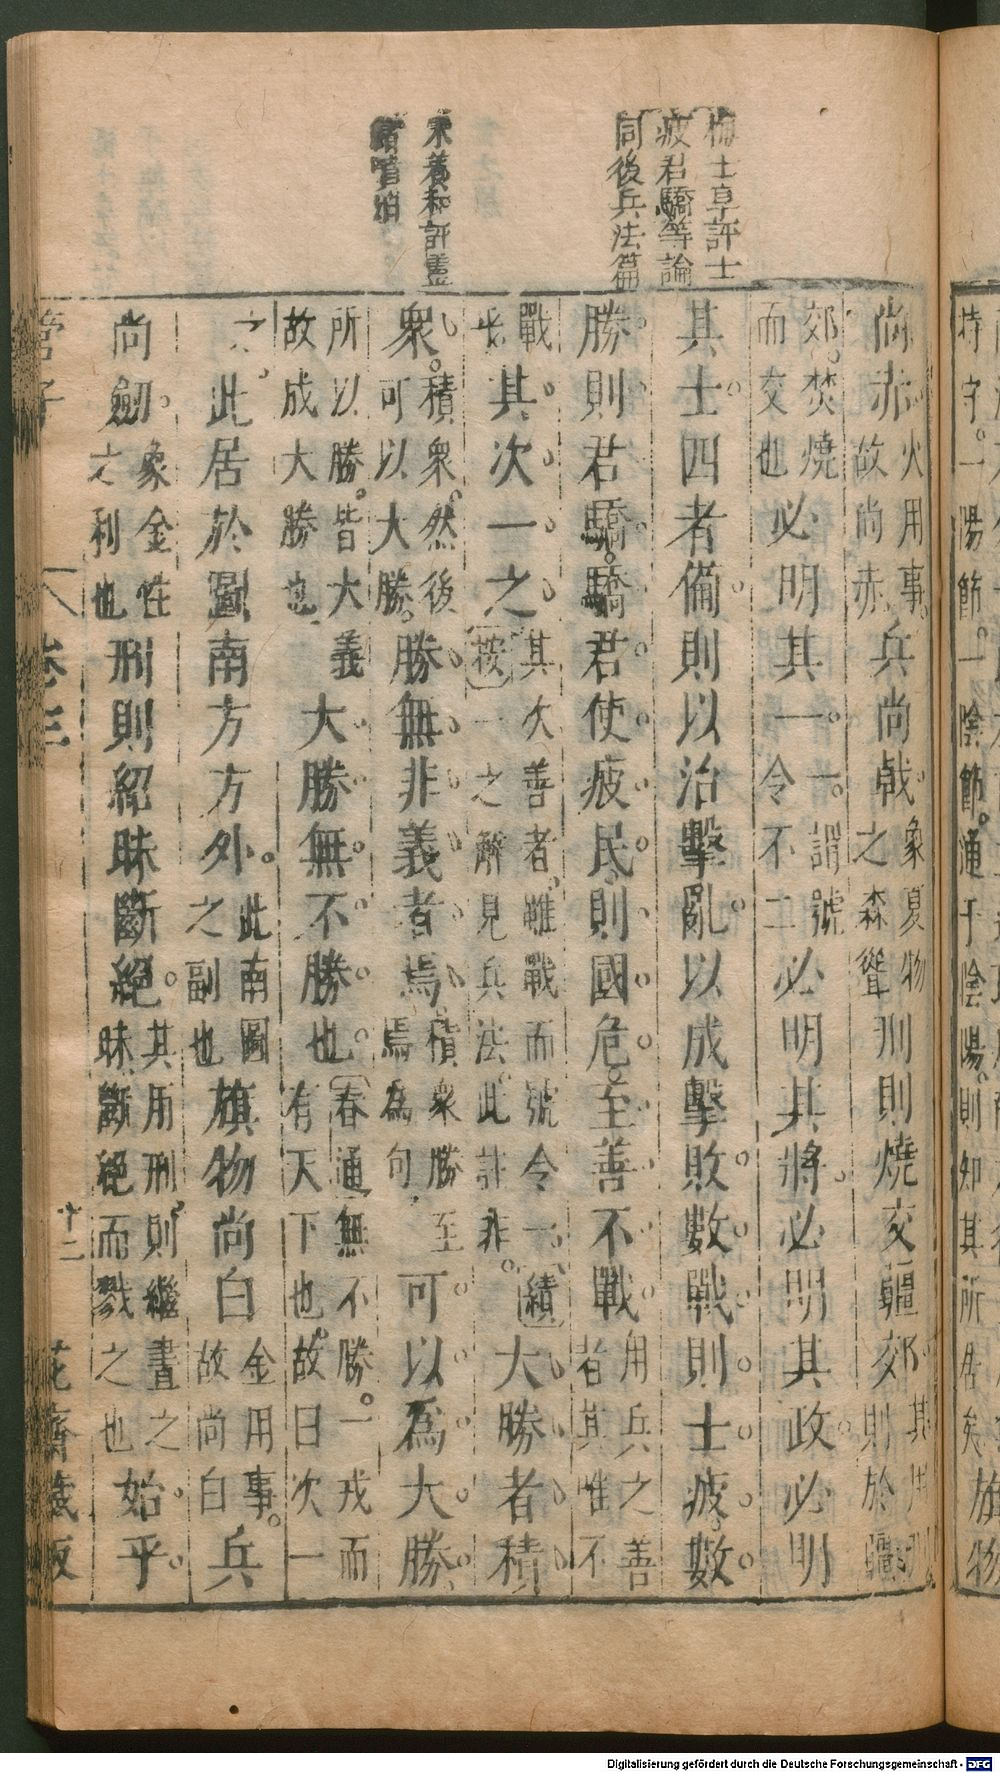 梅士享評士
疲君驕等論
同後兵法篇
朱養和評靈
尚赤火用事故尚赤兵尚戟象夏物之森聳刑則燒交疆郊其用刑則於疆
郊焚燒而交也必明其一一謂號令不二必明其將必明其政必明
其士四者備則以治擊亂以成擊敗數戰則士疲數
勝則君驕驕君使疲民則國危至善不戰用兵之善者其惟不
戰乎其次一之其次善者雖戰而號令一按一之解見兵法此註非續大勝者積
眾積眾然後可以大勝勝無非義者焉積眾勝焉為句至可以爲大勝
所以勝皆大義故成大勝也大勝無不勝也春通無不勝一戎而有天下也故曰次一
之此居於圖南方方外此南圖之副也旗物尚白金用事故尚白兵
尚劒象金性之利也刑則紹昧斷絕其用刑則繼晝之昧斷絕而戮之也始乎
管子 卷三 十二 花齋藏板
持守一陽節一陰節通于陰陽則知其所居矣旗物
Digitalisierung gefördert durch die Deutsche Forschungsgemeinschaft - DFG